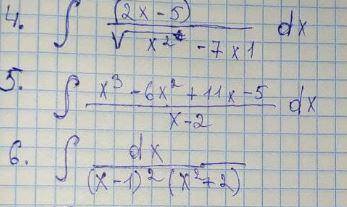 4. ∫ (2x-5) / √(x² - 7x1) dx
5. ∫ (x³ - 6x² + 11x - 5) / (x-2) dx
6. ∫ dx / ((x-1)² (x²+2))